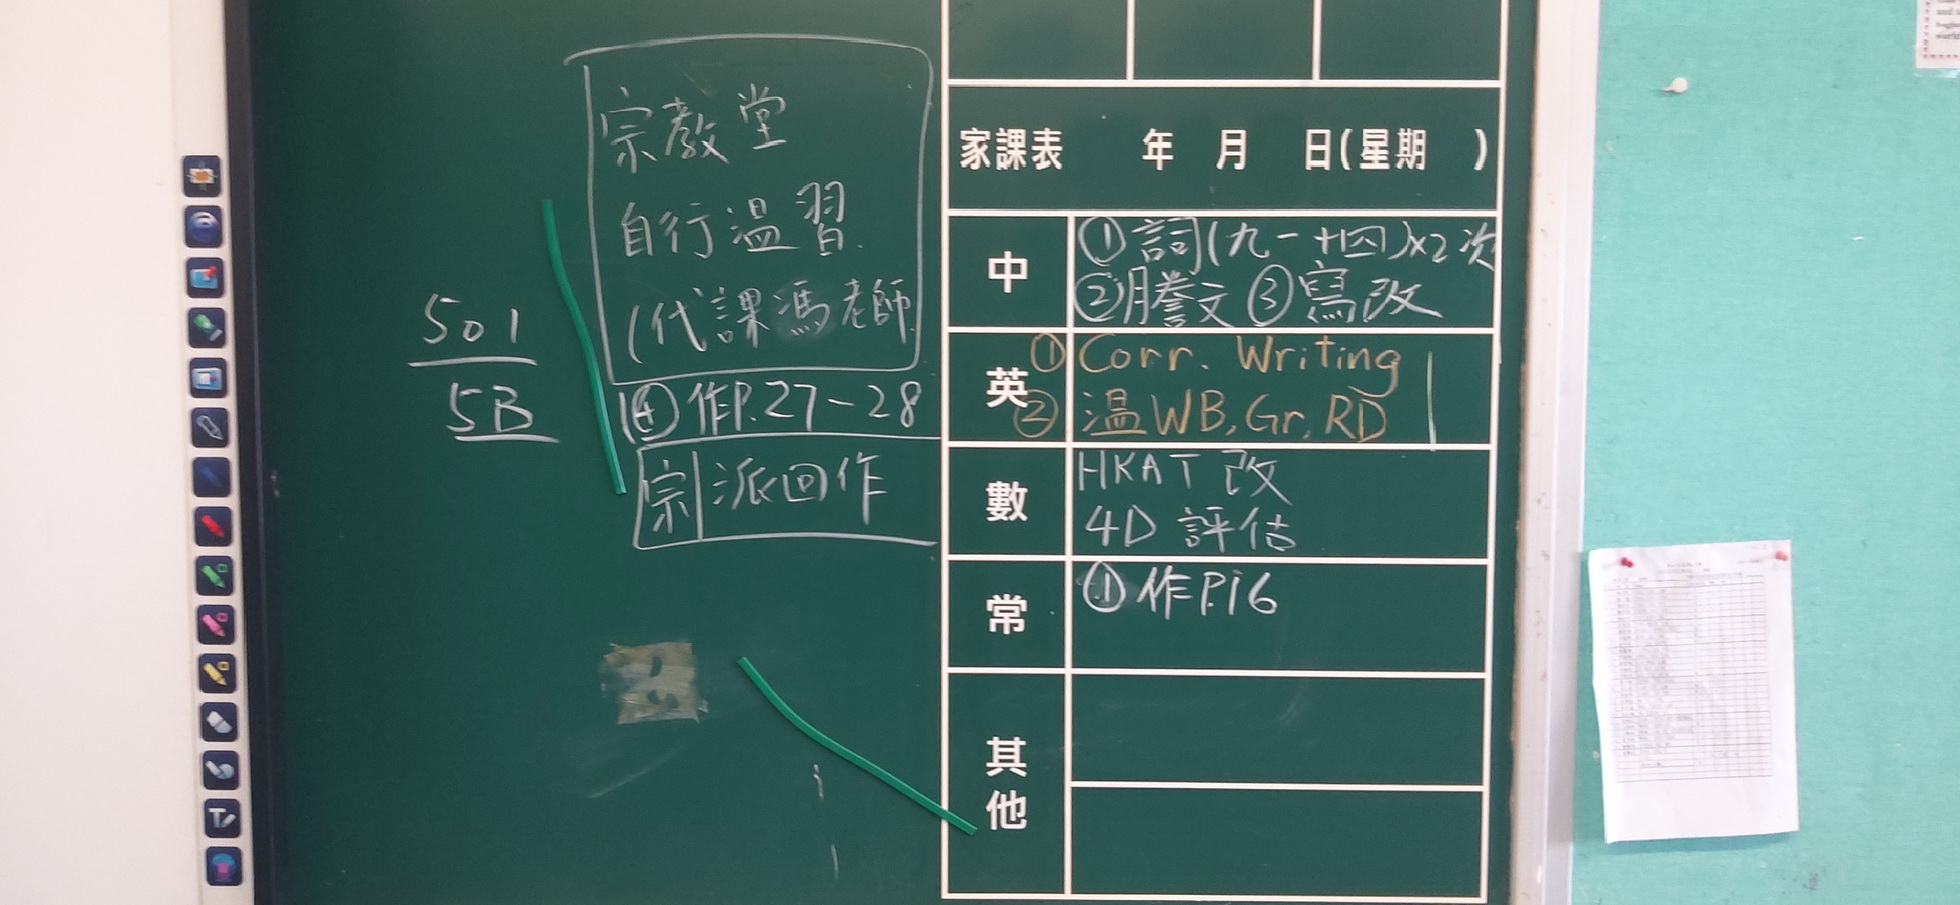 宗教堂
自行温習
(代課馮老師
501
5B
④作P.27-28
宗 派回作
家課表 年 月 日(星期 )
中 ①詞(九一十四)×2次
②謄文 ③寫改
英 ① Corr. Writing
② 温WB, Gr, RD
數 HKAT 改
4D 評估
常 ①作P.16
其他